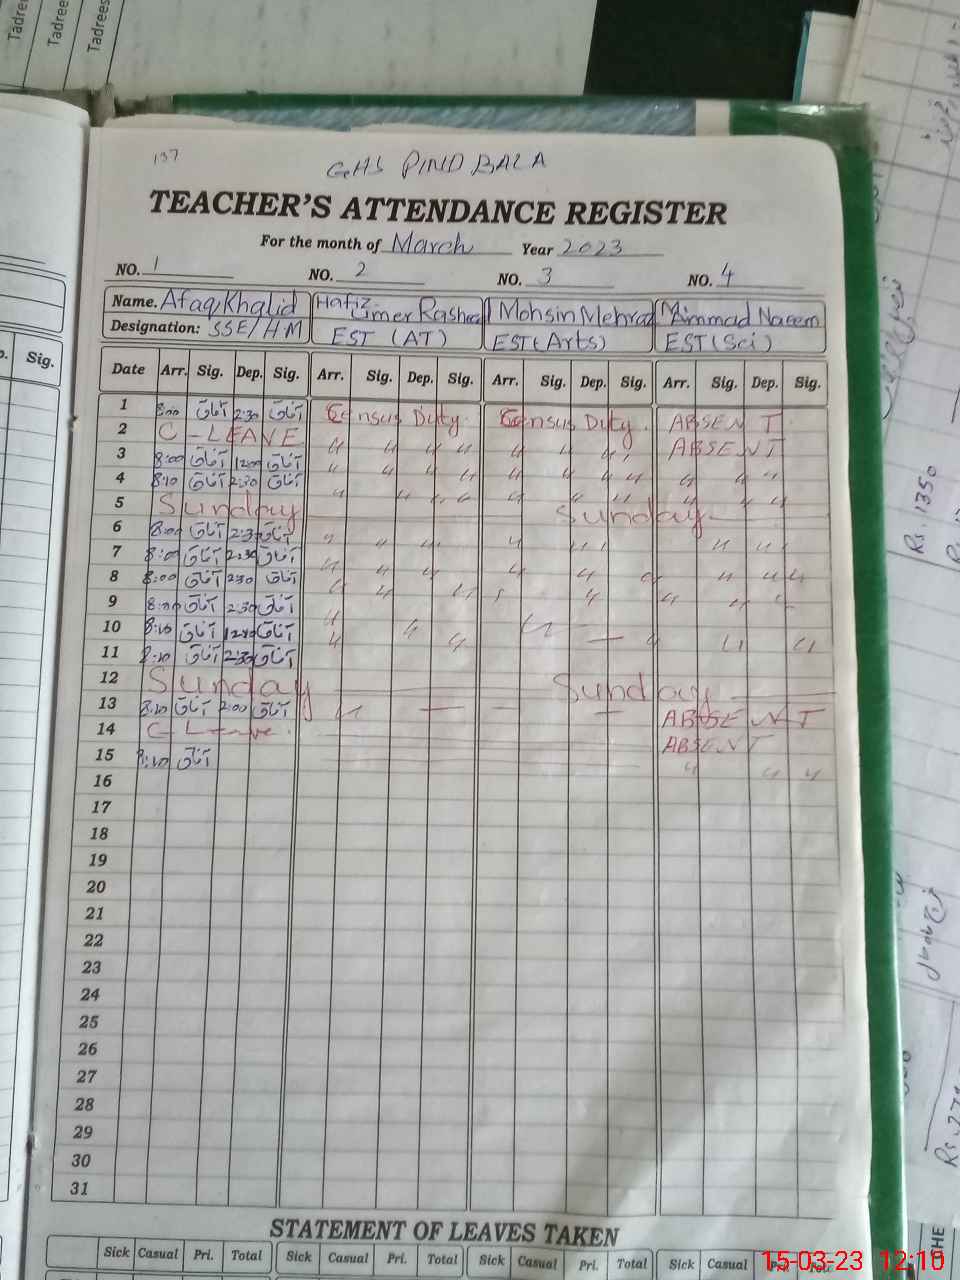 Tadrees
Tadrees
Tadrees
p. Sig.
137
GHS PIND BALA
TEACHER'S ATTENDANCE REGISTER
For the month of March Year 2023
NO. 1 NO. 2 NO. 3 NO. 4
Name. Afaq Khalid Hafiz Umer Rasheed Mohsin Mehrad Naeem
Designation: SSE/HM EST (AT) EST (Arts) EST (Sci)
Date Arr. Sig. Dep. Sig. Arr. Sig. Dep. Sig. Arr. Sig. Dep. Sig. Arr. Sig. Dep. Sig.
1 8:00 آفاق 2:30 آفاق Census Duty Census Duty. ABSENT
2 C-LEAVE " " " " " " " " ABSENT
3 8:00 آفاق 12:00 آفاق " " " " " " " " " "
4 8:10 آفاق 2:30 آفاق " " " " " " " " " "
5 Sunday Sunday
6 8:00 آفاق 2:30 آفاق " " " " " " "
7 8:00 آفاق 2:30 آفاق " " " " " " "
8 8:00 آفاق 2:30 آفاق " " " " " " "
9 8:00 آفاق 2:30 آفاق " " "
10 8:10 آفاق آفاق " " " "
11 8:10 آفاق 2:30 آفاق
12 Sunday Sunday
13 8:10 آفاق 2:00 آفاق " — — — ABSENT
14 C Leave. ABSENT
15 8:10 آفاق " " "
16
17
18
19
20
21
22
23
24
25
26
27
28
29
30
31
STATEMENT OF LEAVES TAKEN
Sick Casual Pri. Total Sick Casual Pri. Total Sick Casual Pri. Total Sick Casual Pri. Total
Rs. 1350
15-03-23 12:10